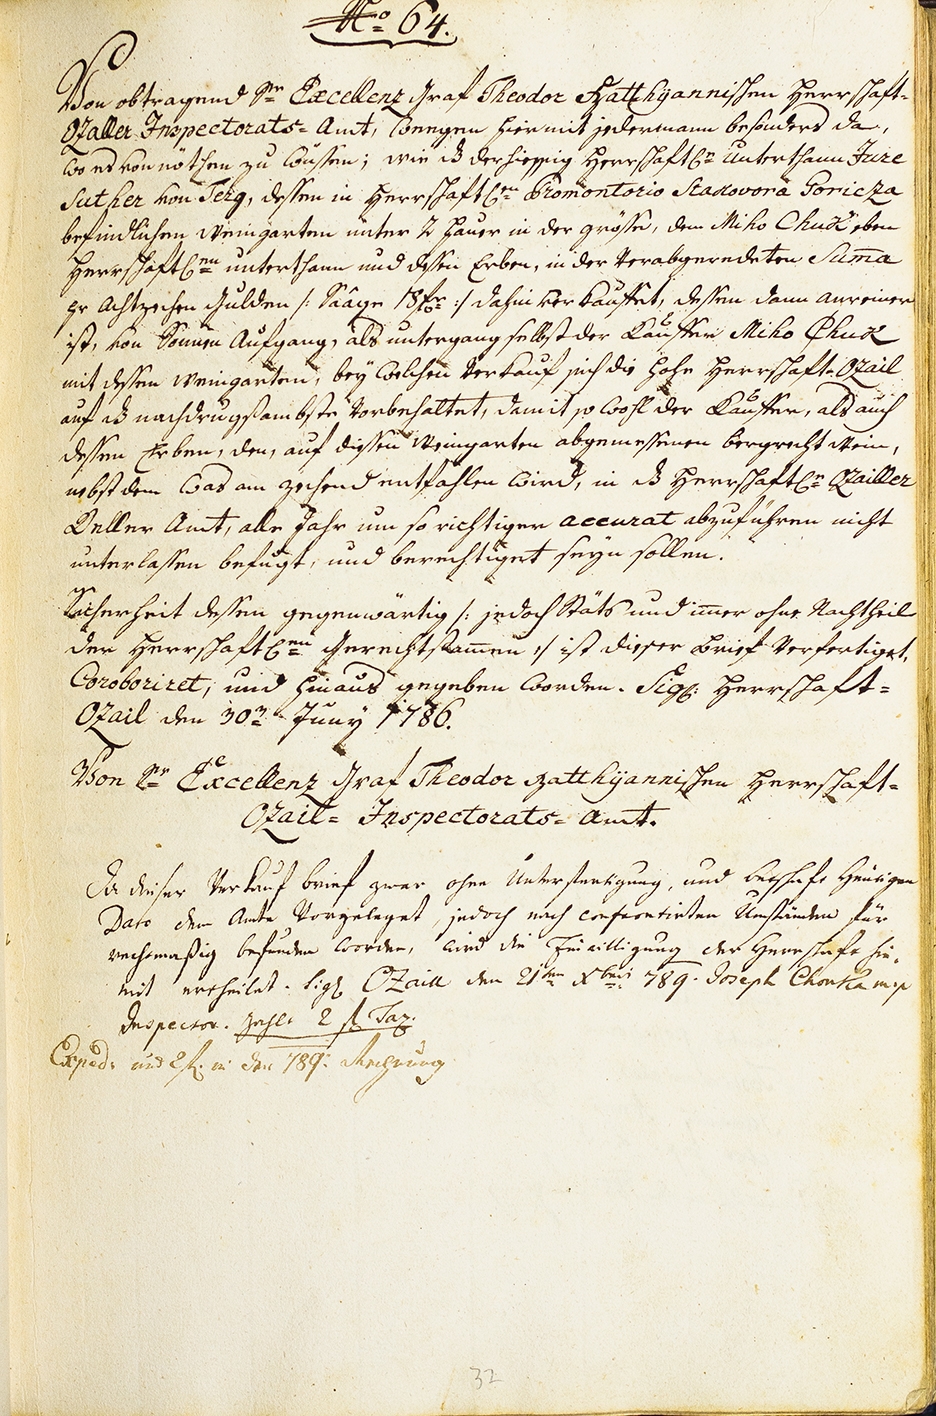 No 64.
Von obtragend Sr Excellenz Graf Theodor Batthyannischen Herrschaft-
Ozaller Inspectorats-Amt, wegen hiermit jedermann besonders da,
wo es von nöthen zu wüssen; wie daß der hießig Herrschaftl: Unterthann Jure
Suther von Terg, dessen in Herrschaftl:en Promontorio Stakovora Goricza
befindlichen Weingarten unter 2 Hauer in der grösse, dem Miho Chuk eben
Herrschaftl:en unterthann und dessen Erben, in der Verabgeredeten Summa
pr Achtzehen Gulden /: Sage 18 fr :/ dahin verkauffet, dessen dann anreiner
ist, von Sonnen Aufgang, als untergang selbst der Kauffer Miho Chuk
mit dessen Weingarten, bey welchen Verkauf sich die hohe Herrschaft-Ozail
auf daß nachdrugsambste Vorbehaltet, damit so wohl der Kauffer, als auch
dessen Erben, den, auf diesen Weingarten abgemessenen bergrecht Wein,
nebst dem was am zehend entfahlen wird, in daß Herrschaftl: Ozailler
Keller Amt, alle Jahr um so richtiger accurat abzuführen nicht
unterlassen befugt, und berechtiget seyn sollen.
Sicherheit dessen gegenwärtig /: jedoch stäts und immer ohne Nachtheil
der Herrschaftl:en Gerechtsammen :/ ist dieser Brief Verfertiget,
Coroboriret, und hinaus gegeben worden. Sigl: Herrschaft-
Ozail den 30n Juny 1786.
Von Sr Excellenz Graf Theodor Batthyannischen Herrschaft-
Ozail- Inspectorats- Amt.
Da dieser Verkauf brief zwar ohne Unterfertigung, und erst heutigen
Dato dem Amte Vorgeleget, jedoch nach confrontirten Umständen für
rechtmäßig befunden worden, wird die Einwilligung der Herrschaft hie-
mit ertheilet. Sigl Ozail den 21ten Xbris 789. Joseph Chonka mp
Inspector. zahlt 2 fl Tax.
Exped: und 2 f. in der 789: Rechnung
32